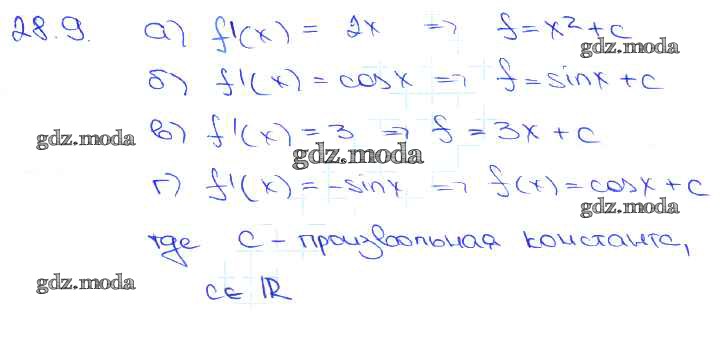 28.9. а) f'(x) = 2x => f = x² + c
gdz.moda
б) f'(x) = cosx => f = sinx + c
gdz.moda
в) f'(x) = 3 => f = 3x + c
gdz.moda
г) f'(x) = -sinx => f(x) = cosx + c
gdz.moda
где c - произвольная константа,
gdz.moda
c ∈ ℝ